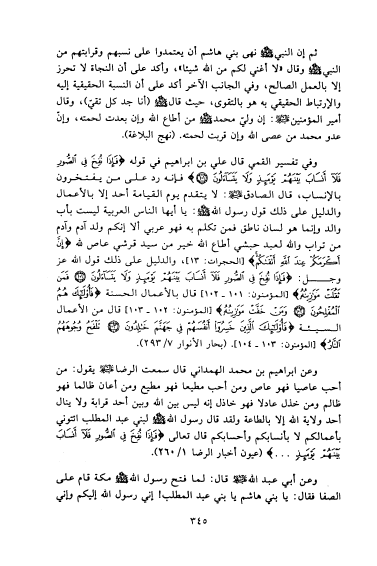 ثم إن النبي ﷺ نهى بني هاشم أن يعتمدوا على نسبهم وقرابتهم من
النبي ﷺ وقال «لا أغني لكم من الله شيئا»، وأكد على أن النجاة لا تحرز
إلا بالعمل الصالح، وفي الجانب الآخر أكد على أن النسبة الحقيقية إليه
والإرتباط الحقيقي به هو بالتقوى، حيث قال ﷺ (أنا جد كل تقيّ)، وقال
أمير المؤمنين: إن وليّ محمد من أطاع الله وإن بعدت لحمته، وإنّ
عدو محمد من عصى الله وإن قربت لحمته. (نهج البلاغة).
وفي تفسير القمي قال علي بن ابراهيم في قوله ﴿فَإِذَا نُفِخَ فِي الصُّورِ
فَلَا أَنسَابَ بَيْنَهُمْ يَوْمَئِذٍ وَلَا يَتَسَاءَلُونَ﴾ فإنه رد على من يفتخرون
بالإنساب، قال الصادق: لا يتقدم يوم القيامة أحد إلا بالأعمال
والدليل على ذلك قول رسول الله ﷺ: يا أيها الناس العربية ليست بأب
والد وإنما هو لسان ناطق فمن تكلم به فهو عربي ألا إنكم ولد آدم وآدم
من تراب والله لعبد حبشي أطاع الله خير من سيد قرشي عاص لله ﴿إِنَّ
أَكْرَمَكُمْ عِندَ اللَّهِ أَتْقَاكُمْ﴾ [الحجرات: ١٣]، والدليل على ذلك قول الله عز
وجل: ﴿فَإِذَا نُفِخَ فِي الصُّورِ فَلَا أَنسَابَ بَيْنَهُمْ يَوْمَئِذٍ وَلَا يَتَسَاءَلُونَ فَمَن
ثَقُلَتْ مَوَازِينُهُ﴾ [المؤمنون: ١٠١ - ١٠٢] قال بالأعمال الحسنة ﴿فَأُولَئِكَ هُمُ
الْمُفْلِحُونَ وَمَنْ خَفَّتْ مَوَازِينُهُ﴾ [المؤمنون: ١٠٢ - ١٠٣] قال من الأعمال
السيئة ﴿فَأُولَئِكَ الَّذِينَ خَسِرُوا أَنفُسَهُمْ فِي جَهَنَّمَ خَالِدُونَ تَلْفَحُ وُجُوهَهُمُ
النَّارُ﴾ [المؤمنون: ١٠٣ - ١٠٤]. (بحار الأنوار ٧/ ٢٩٣).
وعن ابراهيم بن محمد الهمداني قال سمعت الرضا يقول: من
أحب عاصيا فهو عاص ومن أحب مطيعا فهو مطيع ومن أعان ظالما فهو
ظالم ومن خذل عادلا فهو خاذل إنه ليس بين الله وبين أحد قرابة ولا ينال
أحد ولاية الله إلا بالطاعة ولقد قال رسول الله ﷺ لبني عبد المطلب ائتوني
بأعمالكم لا بأنسابكم وأحسابكم قال تعالى ﴿فَإِذَا نُفِخَ فِي الصُّورِ فَلَا أَنسَابَ
بَيْنَهُمْ يَوْمَئِذٍ ...﴾ (عيون أخبار الرضا ١/ ٢٦٠).
وعن أبي عبد الله قال: لما فتح رسول الله ﷺ مكة قام على
الصفا فقال: يا بني هاشم يا بني عبد المطلب! إني رسول الله إليكم وإني
٣٤٥